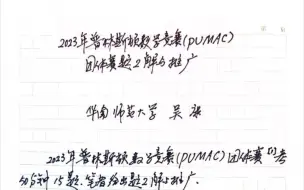 2023年普林斯顿数学竞赛(PUMAC)
团体赛题2解与推广
华南师范大学 吴康
2023年普林斯顿数学竞赛(PUMAC)团体赛[1]考
15题.笔者给出题2解与推广.